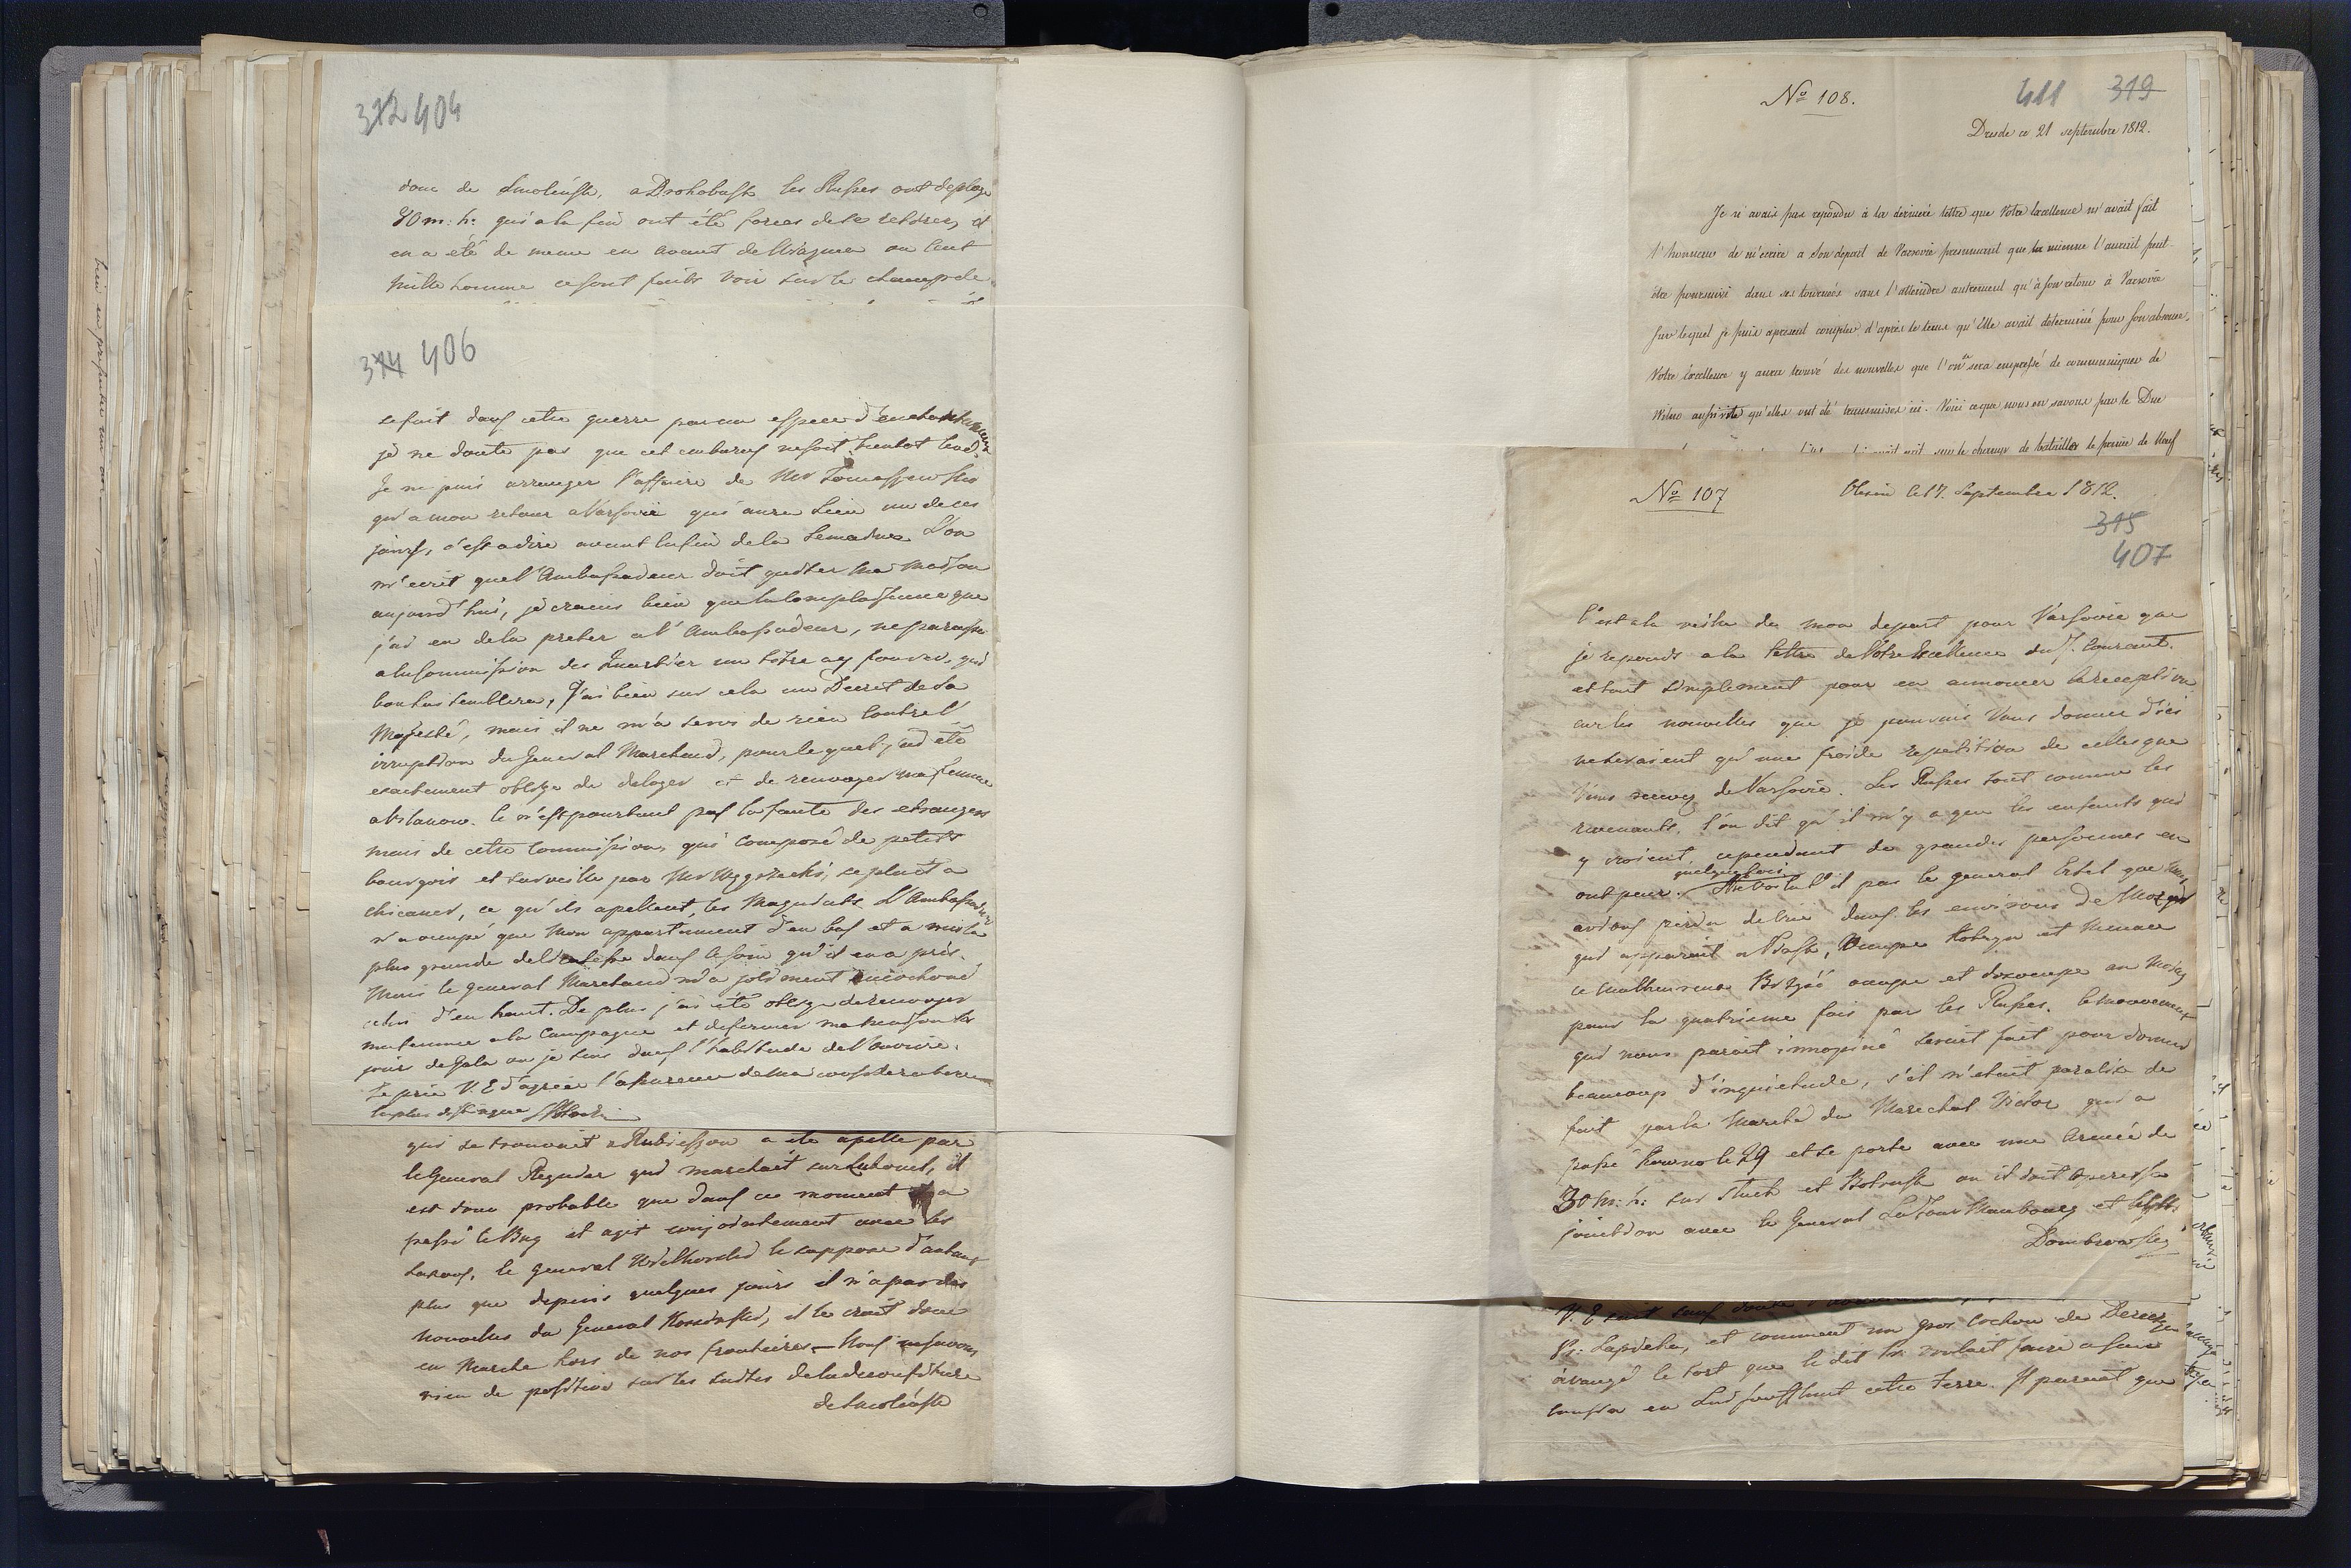 312 404
donc de Smolensk, a Drohobusk les Russes ont deploye
30 m: h: qui a la fin ont été forcés de se retirer, il
en a été de meme en avant de Wiazma ou Cent
mille homme ce sont faits voir sur le champ de
314 406
se fait dans cette guerre par un espece d'enchantement
je ne doute pas que cet embaras ne soit bientot levé.
Je ne puis arranger l'affaire de Mr Tomaszewski
qu'a mon retour a Varsovie qui aura lieu un de ces
jours, c'est a dire avant la fin de la Semaine. L'on
m'ecrit que l'Ambassadeur doit quitter ma Maison
aujourd'hui, je crains bien que la Complaisance que
j'ai eu de la preter a l'Ambassadeur, ne paraisse
a la Commission des Quartier un titre a y fourer, qui
bon lui semblera, J'ai bien sur cela un Decret de Sa
Majesté, mais il ne m'a servi de rien Contre l'
irruption du General Marchand, pour lequel j'ai été
exactement oblige de deloger et de renvoyer ma femme
a Wilanow. Ce n'est pourtant pas la faute des etrangers
mais de cette Commission, qui composé de petits
bourgois et surveillé par Mr Węgrzecki, se plait a
chicaner, ce qu'ils apellent, les Magnats. L'Ambassadeur
n'a occupé que Mon appartement d'en bas et a mis la
plus grande delicatesse dans le soin qu'il en a pris.
Mais le general Marchand m'a joliment encochoné
celui d'en haut. De plus j'ai été oblige de renvoyer
ma femme a la Campagne et de fermer ma maison les
jours de Gala ou je suis dans l'habitude de l'ouvrire.
Je prie V. E d'agréer l'assurance de ma consideration
la plus distingue
qui se trouvait a Rubieszow a été apellé par
le General Regnier qui marchait sur Luboml, il
est donc probable que dans ce moment il a
passé le Bug et agit conjointement avec les
Saxons, le general Wielhorski le suppose d'autant
plus que depuis quelques jours il n'a pas des
nouvelles du General Kosinski, il le croit donc
en Marche hors de nos frontieres. Nous ne savons
rien de positive sur les suites de la deconfiture
de Smolensk
No 108.
411 319
Dresde ce 21 septembre 1812.
Je n'avais pas repondu à la derniere lettre que Votre Excellence m'avait fait
l'honneur de m'écrire a Son depart de Varsovie presumant que la mienne l'aurait peut-
être poursuivi dans ses tournées sans l'atteindre autrement qu'à Son retour à Varsovie
Sur lequel je puis apresent compter d'après le tems qu'Elle avait déterminé pour Son absence,
Votre Excellence y aura trouvé des nouvelles que l'on se sera empressé de communiquer de
Wilno aussi vite qu'elles ont été transmises ici. Voici ce que nous en savons par le Duc
sur le champ de bataille le prince de Neuf
No 107
Olesin le 17. Septembre 1812.
315
407
C'est a la veille de mon depart pour Varsovie que
je reponds a la lettre de Votre Excellence du 7. Courant.
et tout simplement pour en annoncer la reception
car les nouvelles que je pourrais Vous donner d'ici
ne seraient qu'une froide repetition de celles que
Vous recevez de Varsovie. Les Russes sont comme les
revenants, l'on dit qu'il n'y a que les enfants qui
y croient, cependant de grandes personnes en
quelque fois
ont peur. Ne voila t'il pas le general Ertel que nous
avions perdu de vue dans les environs de Mozyr
qui apparait a Pinsk, Occupe Kobryn et Menace
ce malheureux Brześć occupé et desoccupe au Moins
pour la quatrieme fois par les Russes. Ce mouvement
qui nous parait innopiné serait fait pour donner
beaucoup d'inquietude, s'il n'etait paralisé de
fait par la Marche du Marechal Victor qui a
passé Kowno le 29 et se porte avec une Armée de
30 m: h: sur Sluck et Bobrusk ou il doit operer sa
jonction avec le General La Tour Maubourg et
Dombrowsky
V. E sait sans doute
Pr: Sapieha, et comment un gros Cochon de Derecz
arrangé le sort que le dit Pr: voulait faire a son
Cousin en lui
cette terre. Il parait que